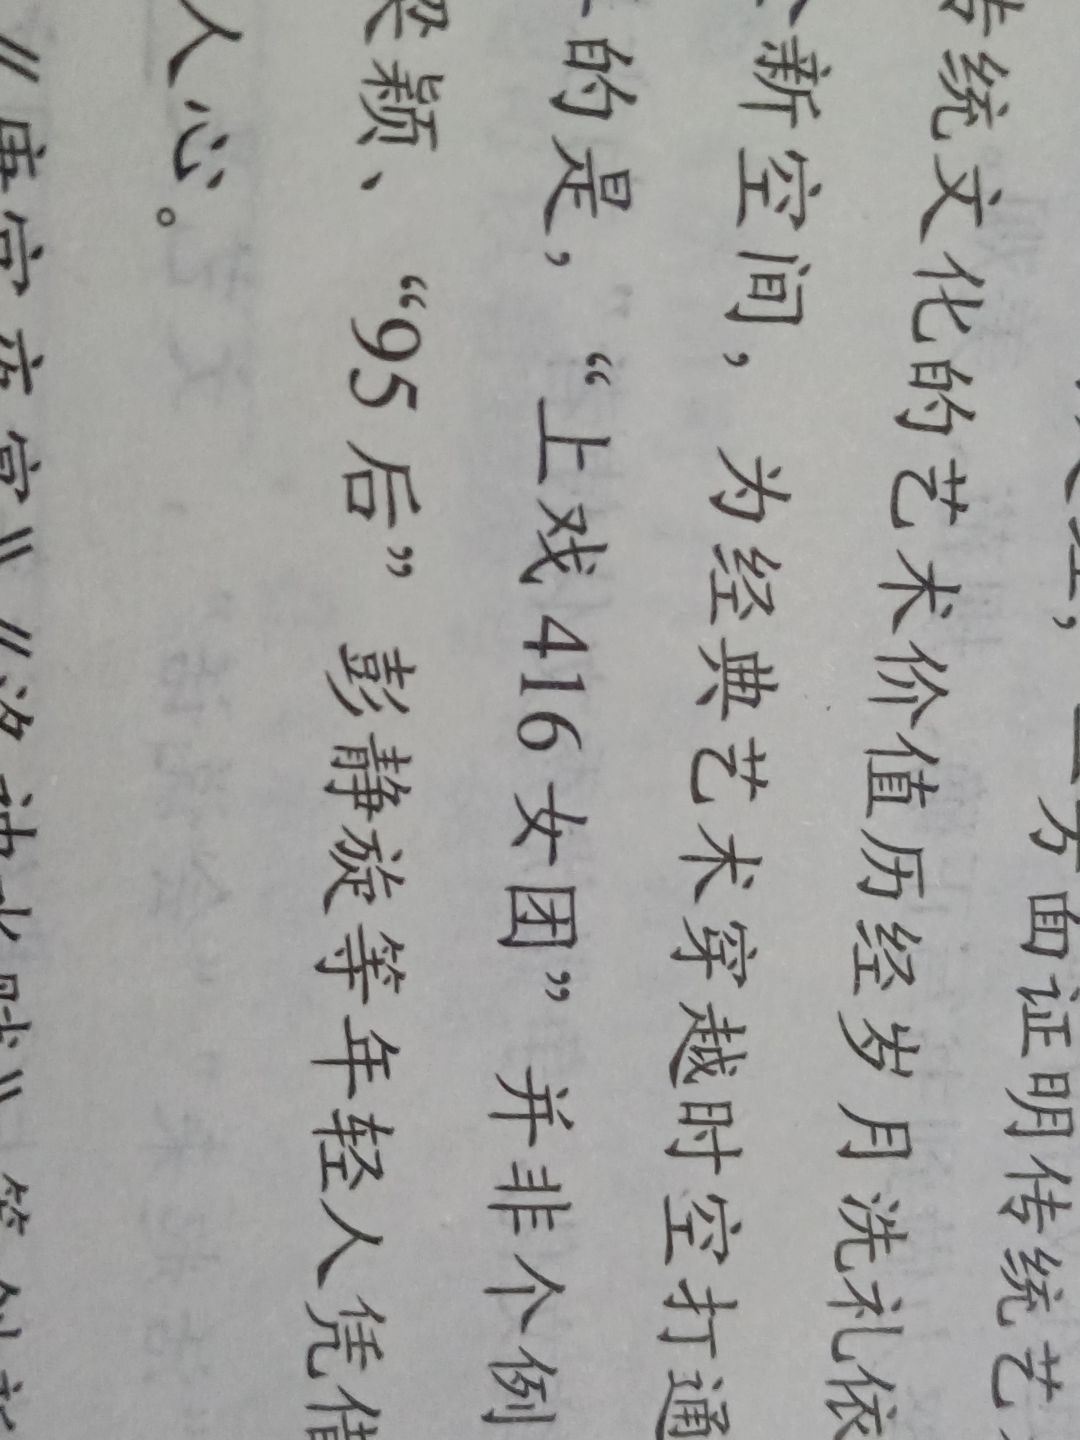 ，一方面证明传统艺
传统文化的艺术价值历经岁月洗礼依
新空间，为经典艺术穿越时空打通
的是，“上戏416女团”并非个例
梁颖、“95后”彭静旋等年轻人凭借
人心。
《唐宫夜宴》《洛神水赋》等创新